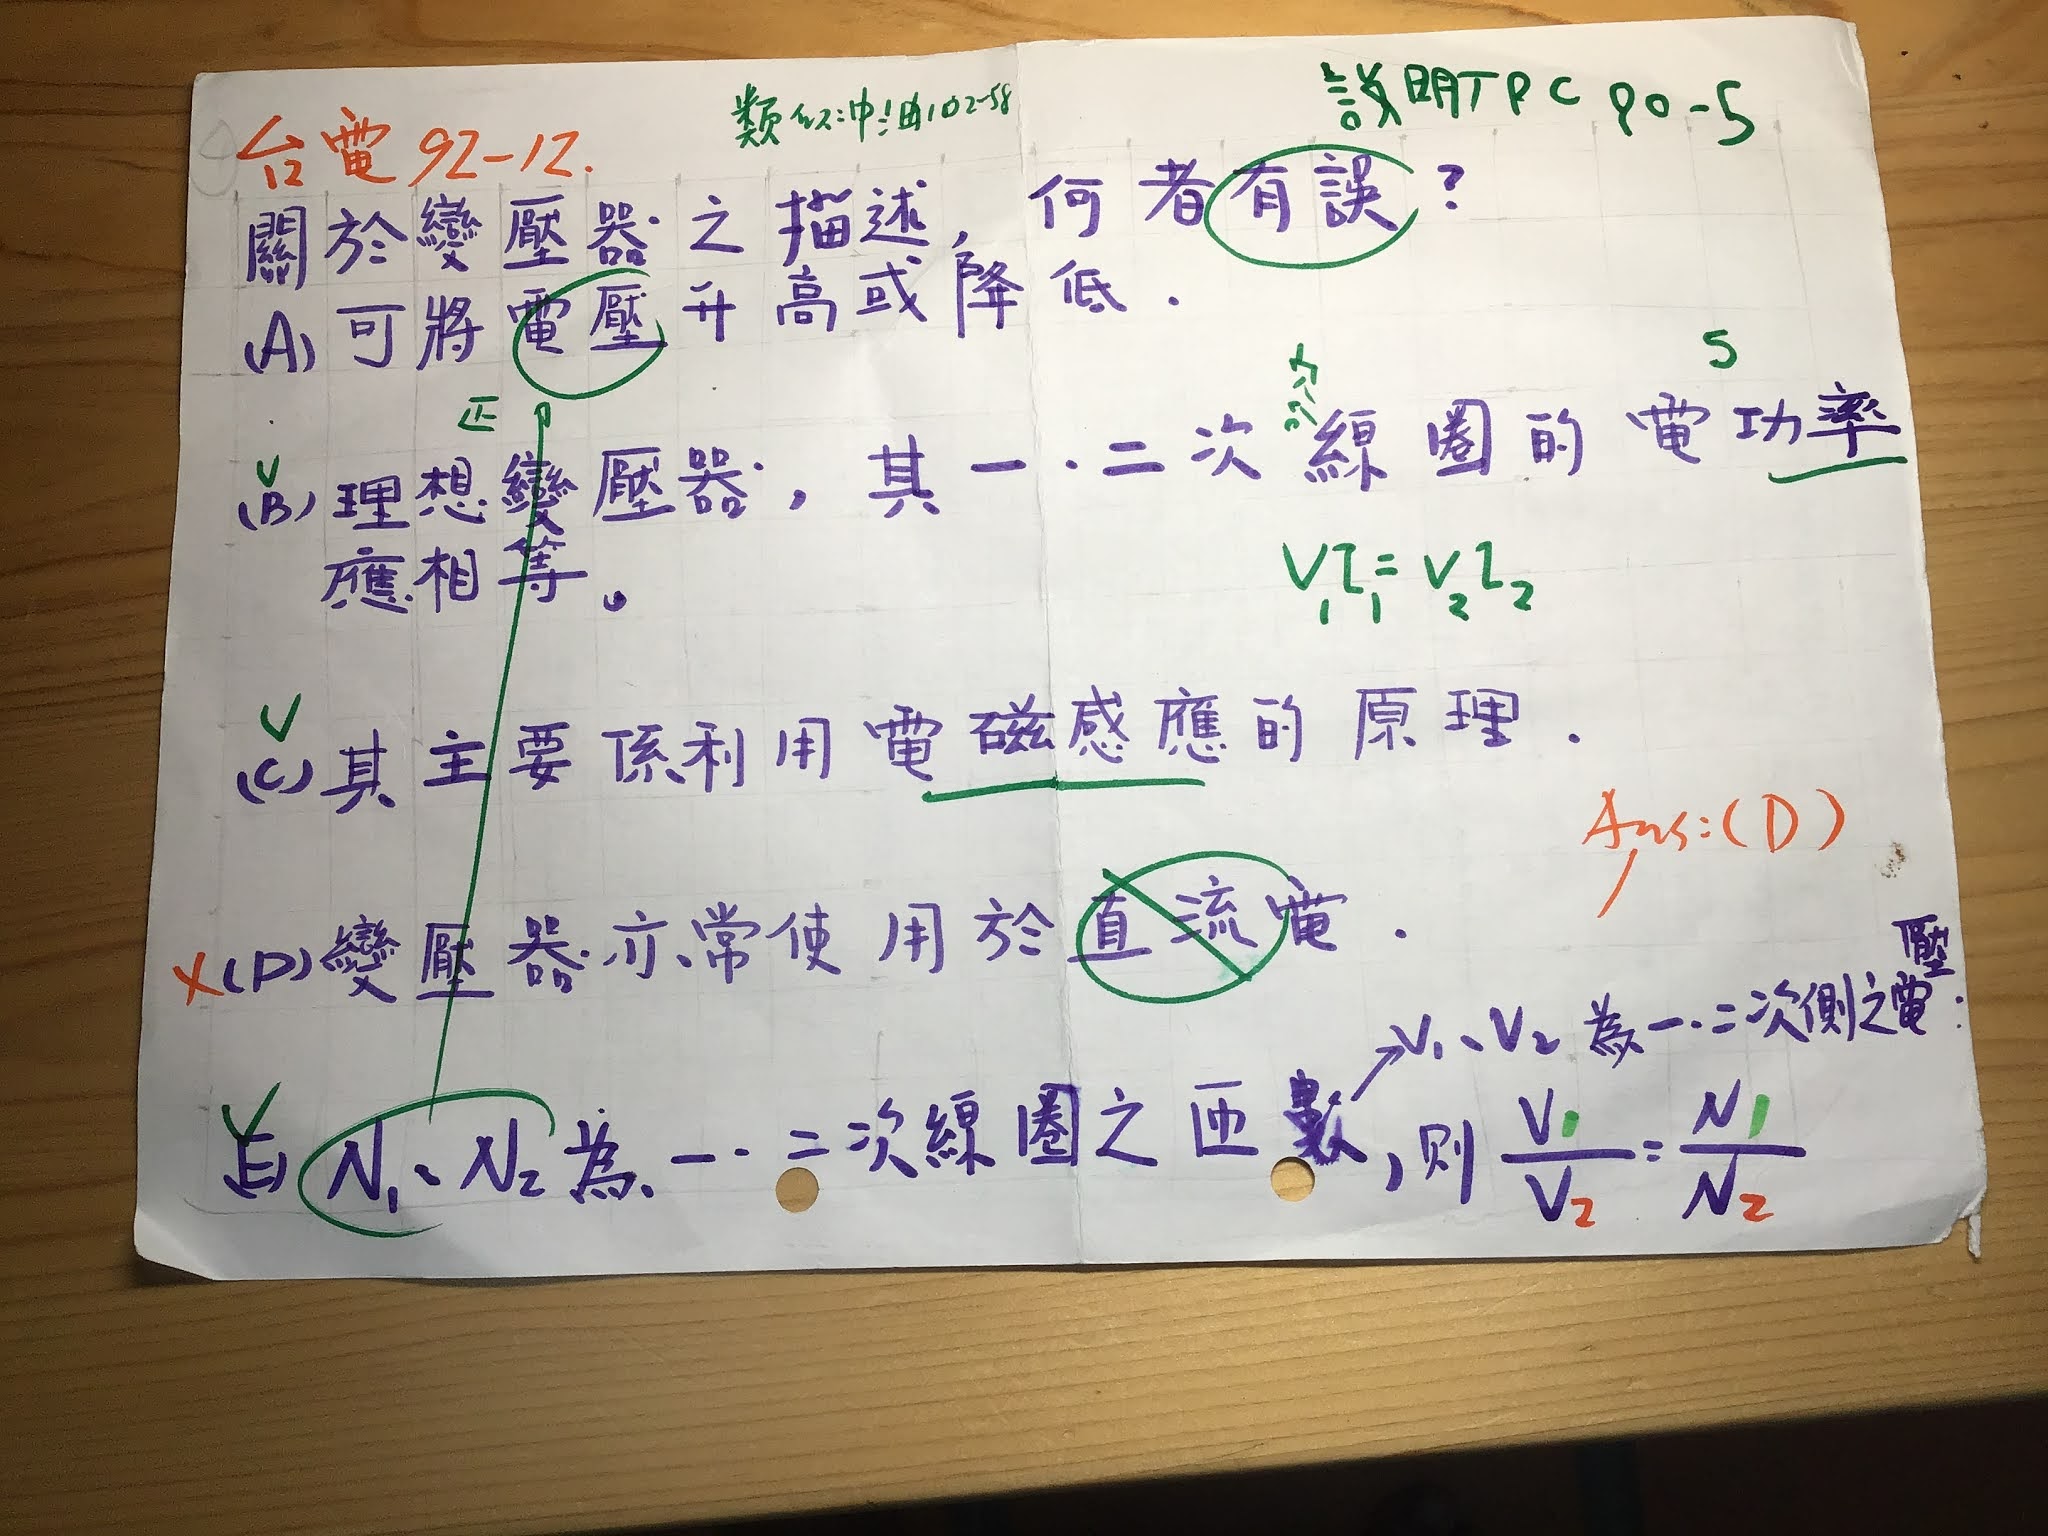 台電92-12.
類似:中油102-58
說明TPC 90-5
關於變壓器之描述,何者有誤?
(A)可將電壓升高或降低.
正
V
S
(B)理想變壓器,其一.二次線圈的電功率
應相等。
V₁I₁=V₂I₂
V
(C)其主要係利用電磁感應的原理.
Ans:(D)
X(D)變壓器亦常使用於直流電.
V₁、V₂為一.二次側之電壓.
V
(E)N₁、N₂為一.二次線圈之匝數,則V₁/V₂=N₁/N₂